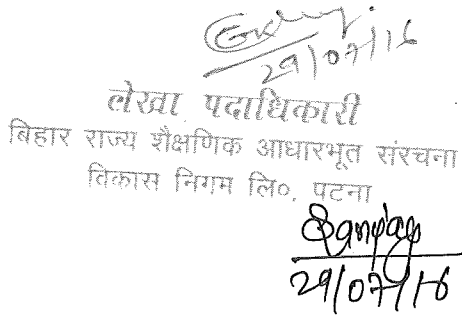 29/07/16
लेखा पदाधिकारी
बिहार राज्य शैक्षणिक आधारभूत संरचना
विकास निगम लि०, पटना
Sanjay
29/07/16